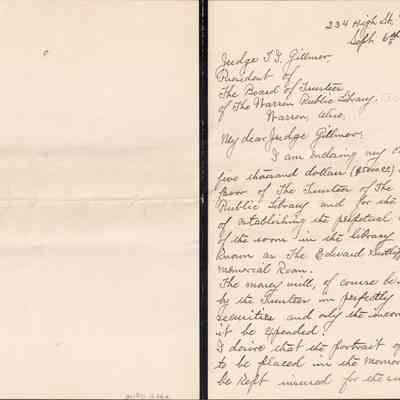 234 High St.
Sept. 6th
Judge T. I. Gillmer,
President of
The Board of Trustees
of The Warren Public Library.
Warren, Ohio.
My dear Judge Gillmer,
I am enclosing my
five thousand dollars
favor of The Trustees of The
Public Library and for the
of establishing the perpetual
of the room in the library
known as The Edward
Memorial Room.
The money will, of course be
by the Trustees in perfectly
securities and only the
it be expended.
I desire that the portrait of
to be placed in the
be kept insured for the